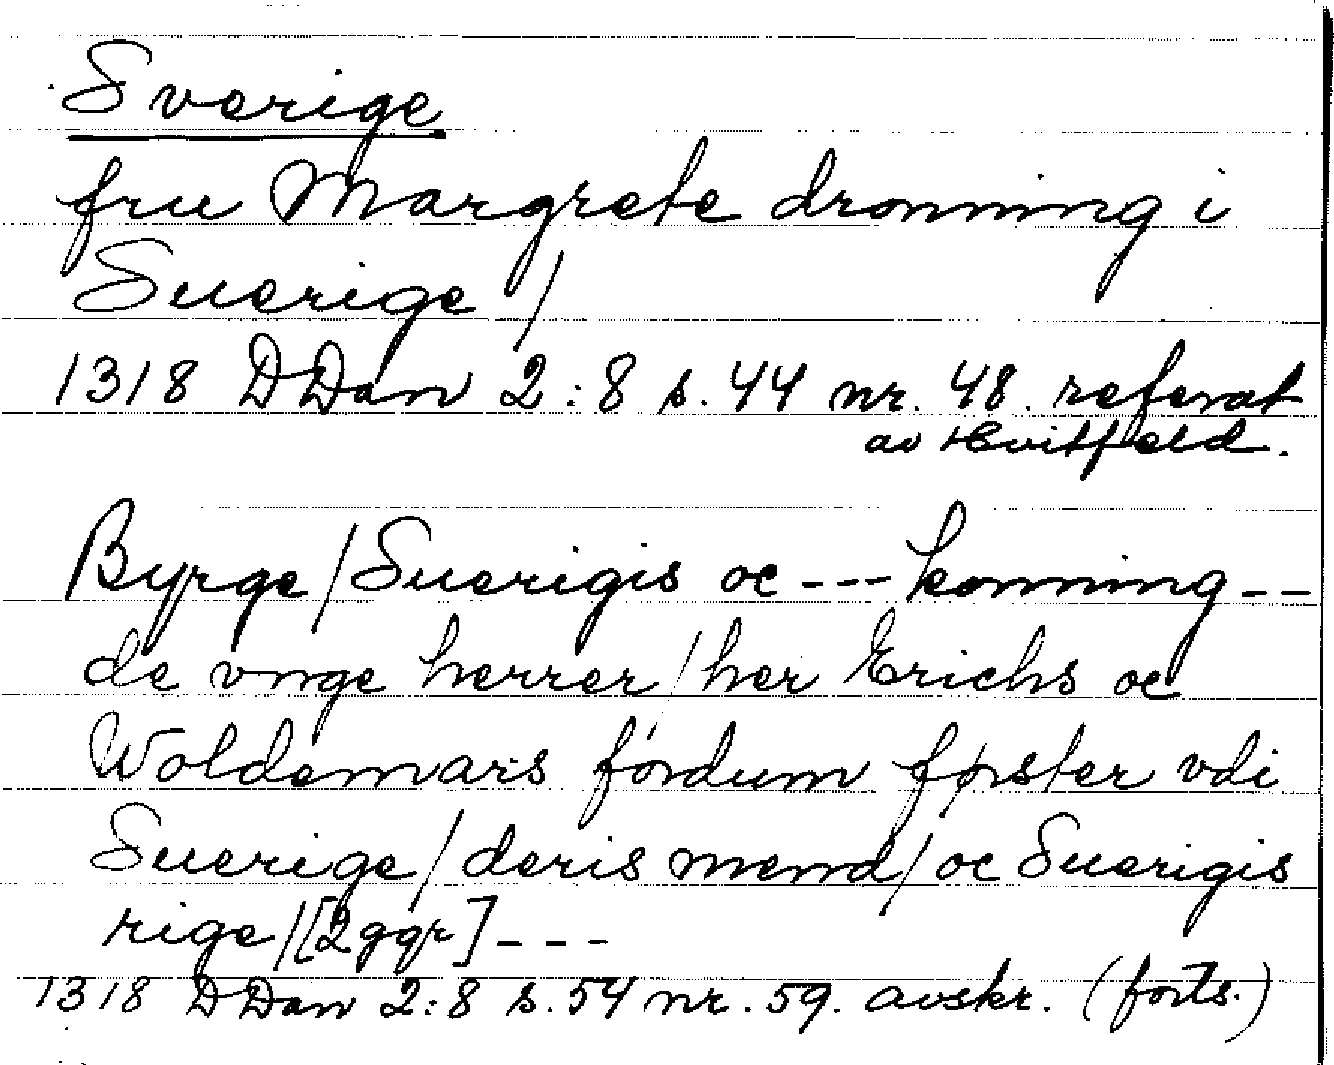 Sverige
fru Margrete dronning i
Suerige /
1318 DDan 2:8 s. 44 nr. 48. referat
av Hvitfeld.
Byrge / Suerigis oc --- konning --
de vnge herrer / her Erichs oc
Woldemars fordum førster vdi
Suerige / deris mend / oc Suerigis
rige / [2 ggr] ---
1318 DDan 2:8 s. 54 nr. 59. avskr. (forts.)